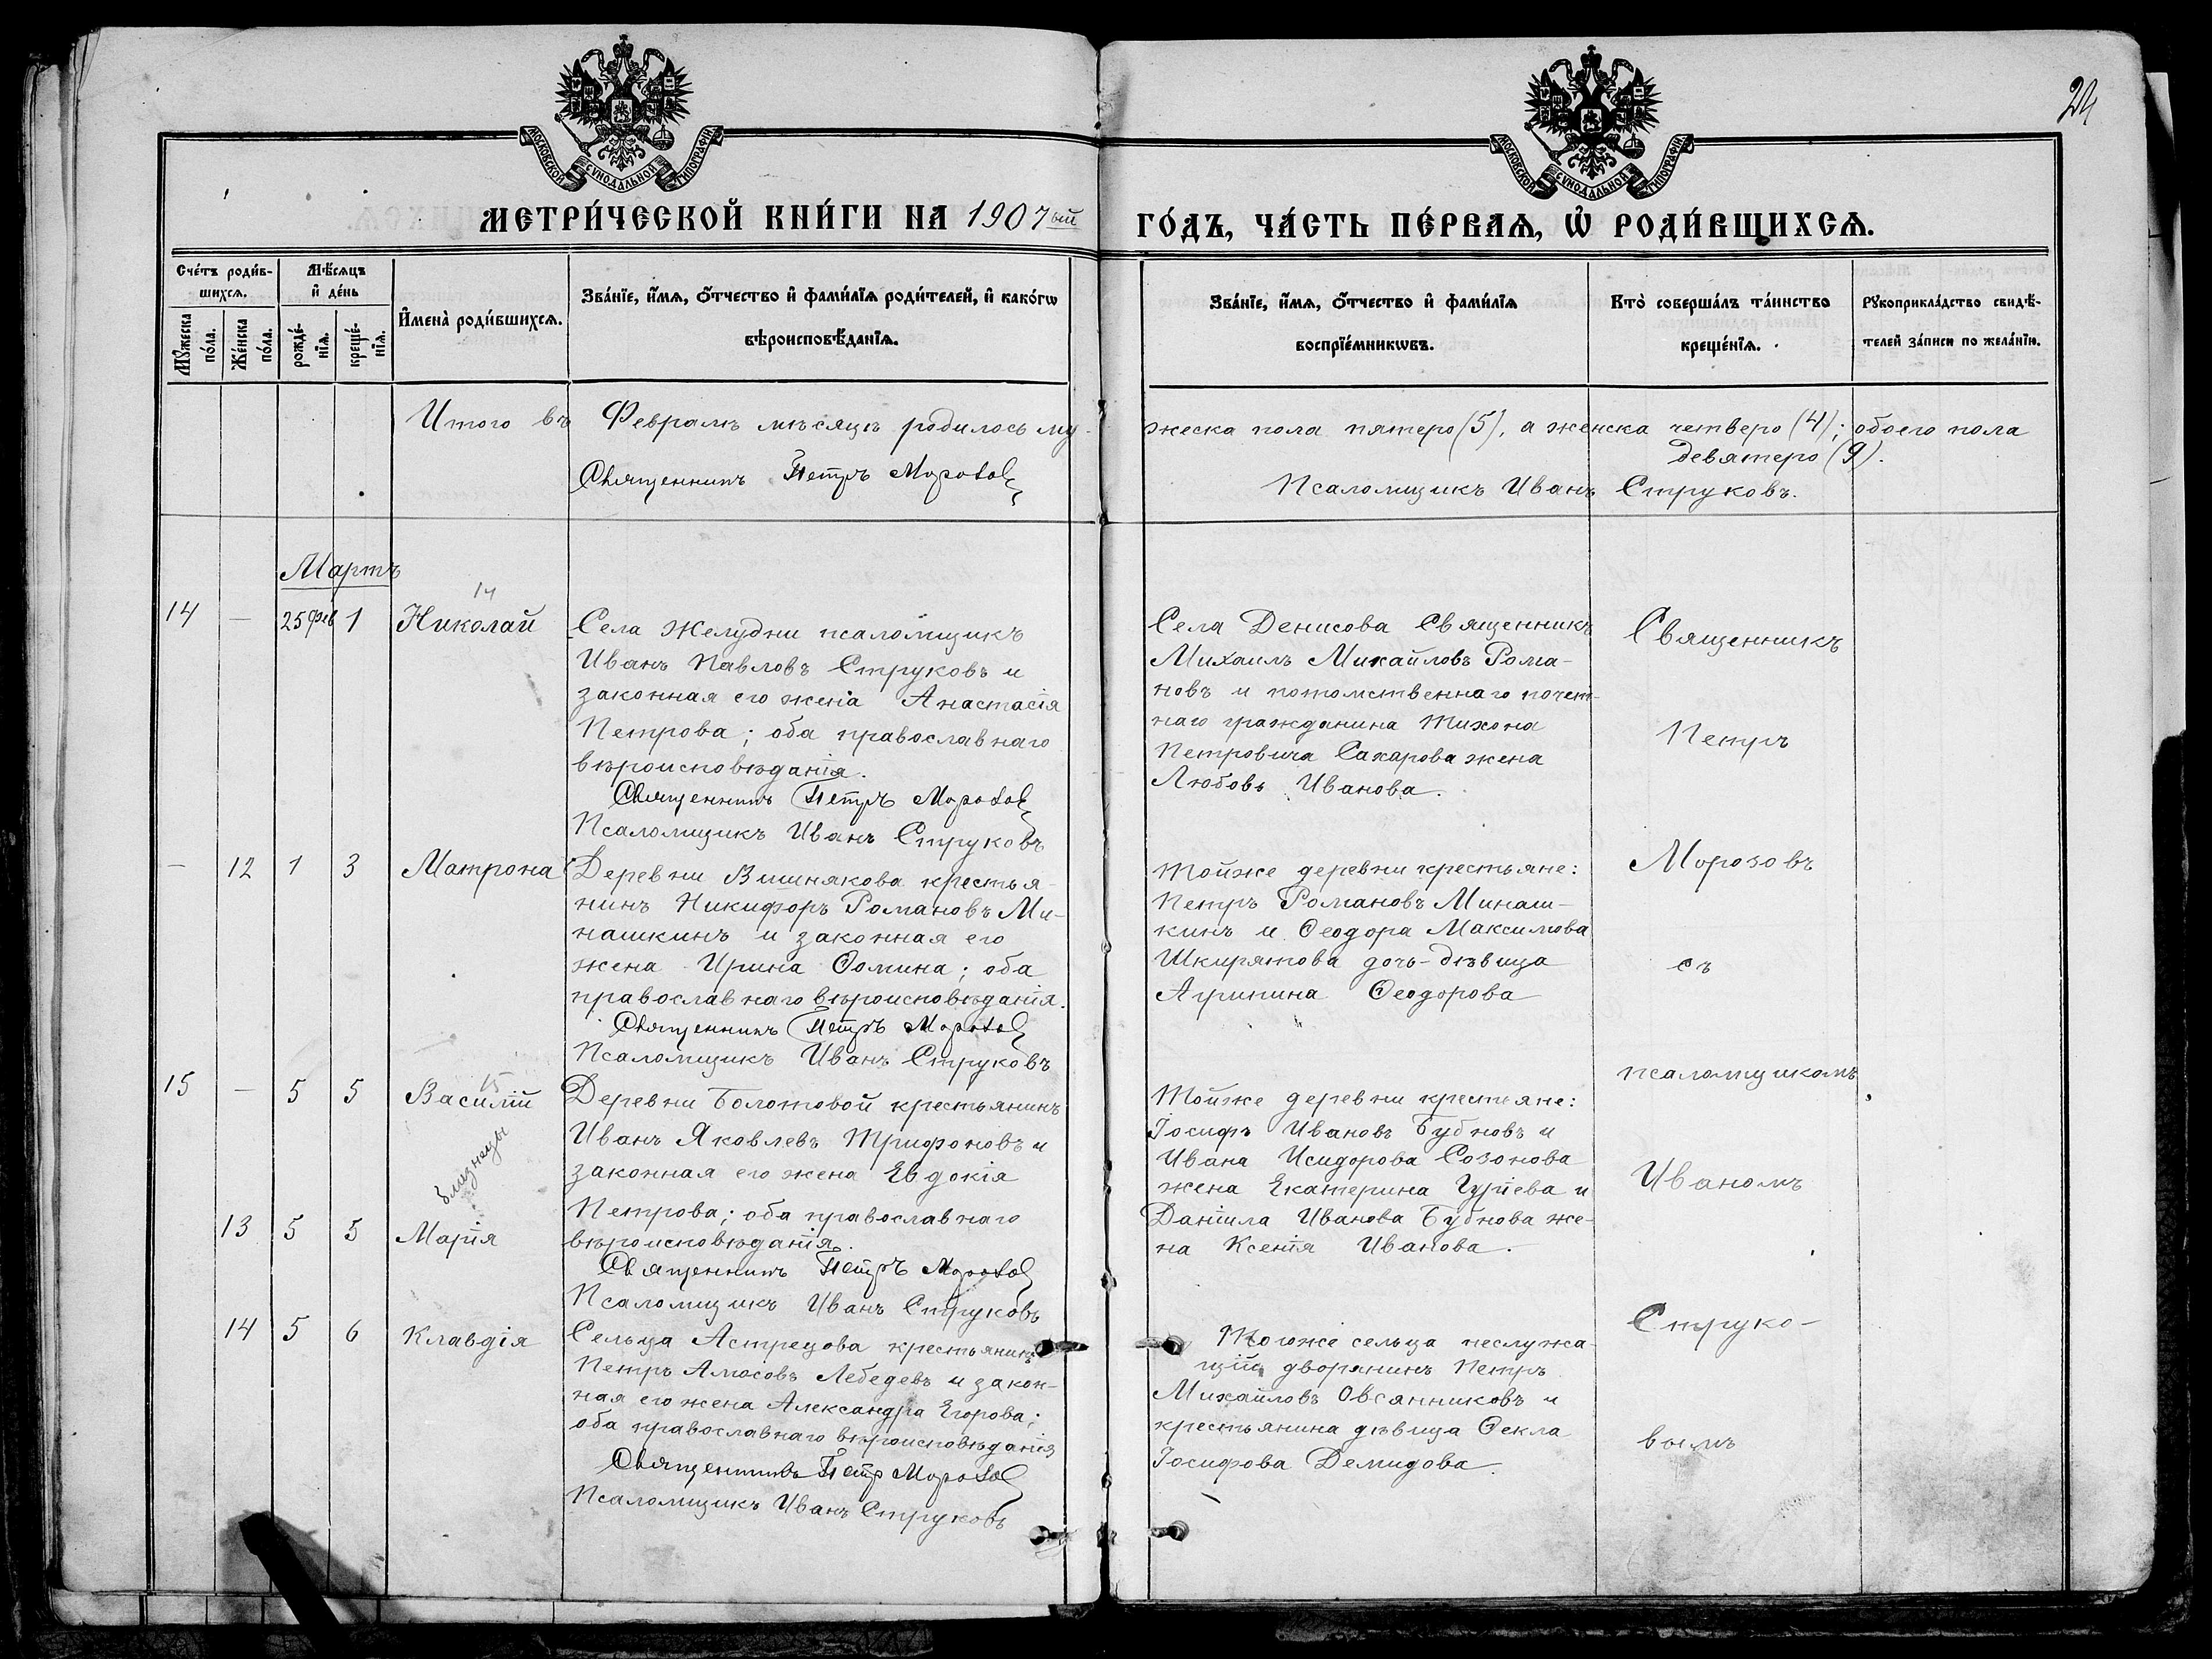 24
МОСКОВСКОЙ СѴНОДАЛЬНОЙ ТИПОГРАФІИ
МОСКОВСКОЙ СѴНОДАЛЬНОЙ ТИПОГРАФІИ
МЕТРИ́ЧЕСКОЙ КНИ́ГИ НА 1907ый ГО́ДЪ, ЧА́СТЬ ПЕ́РВАѦ, Ѡ҆ РОДИ́ВШИХСѦ.
Сче́тъ роди́в-
шихсѧ.
Мꙋ́жеска по́ла.
Же́нска по́ла.
Мѣ́сѧцъ
и҆ де́нь
рожде́-
нїѧ.
креще́-
нїѧ.
И҆мена̀ роди́вшихсѧ.
Зва́нїе, и҆́мѧ, ѻ҆́тчество и҆ фами́лїѧ роди́телей, и҆ како́гѡ
вѣроисповѣ́данїѧ.
Зва́нїе, и҆́мѧ, ѻ҆́тчество и҆ фами́лїѧ
воспрїе́мникѡвъ.
Кто̀ соверша́лъ та́инство
креще́нїѧ.
Рꙋкоприкла́дство свидѣ́-
телей за́писи по жела́нїю.
Итого въ Февралѣ мѣсяцѣ родилось му-
жеска пола пятеро (5), а женска четверо (4); обоего пола
девятеро (9).
Священникъ Петръ Морозов
Псаломщикъ Иванъ Струковъ.
Мартъ
14
14 — 25 фев 1 Николай
Села Желудни псаломщикъ
Иванъ Павловъ Струковъ и
законная его жена Анастасія
Петрова; оба православнаго
вѣроисповѣданія.
Священникъ Петръ Морозов
Псаломщикъ Иванъ Струковъ
Села Денисова Священникъ
Михаилъ Михайловъ Рома-
новъ и потомственнаго почет-
наго гражданина Тихона
Петровича Сахарова жена
Любовь Иванова.
— 12 1 3 Матрона
Деревни Вишнякова крестья-
нинъ Никифоръ Романовъ Ми-
нашкинъ и законная его
жена Ирина Ѳомина; оба
православнаго вѣроисповѣданія.
Священникъ Петръ Морозов
Псаломщикъ Иванъ Струковъ
Тойже деревни крестьяне:
Петръ Романовъ Минаш-
кинъ и Ѳеодора Максимова
Шкирятова дочь-дѣвица
Агрипина Ѳеодорова
15
15 — 5 5 Василій
близнецы
13 5 5 Марія
Деревни Болотовой крестьянинъ
Иванъ Яковлевъ Трифоновъ и
законная его жена Евдокія
Петрова; оба православнаго
вѣроисповѣданія.
Священникъ Петръ Морозов
Псаломщикъ Иванъ Струковъ
Тойже деревни крестьяне:
Іосифъ Ивановъ Бубновъ и
Ивана Исидорова Созонова
жена Екатерина Гуріева и
Даніила Иванова Бубнова же-
на Ксенія Иванова.
14 5 6 Клавдія
Сельца Астрецова крестьянинъ
Петръ Амосовъ Лебедевъ и закон-
ная его жена Александра Егорова;
оба православнаго вѣроисповѣданія
Священникъ Петр Морозов
Псаломщикъ Иванъ Струковъ
Тогоже сельца неслужа-
щій дворянинъ Петръ
Михайловъ Овсянниковъ и
крестьянина дѣвица Ѳекла
Іосифова Демидова.
Священникъ
Петръ
Морозовъ
съ
псаломщикомъ
Иваномъ
Струко-
вымъ